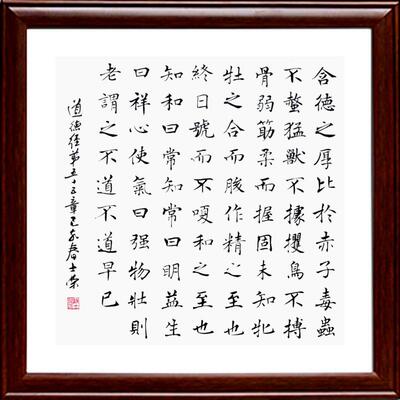 含德之厚比於赤子毒蟲
不螫猛獸不據攫鳥不搏
骨弱筋柔而握固未知牝
牡之合而朘作精之至也
終日號而不嗄和之至也
知和曰常知常曰明益生
曰祥心使氣曰强物壯則
老謂之不道不道早已
道德经第五十五章己亥春士荣